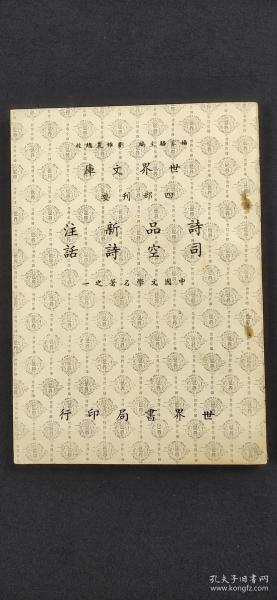 楊家駱主編 劉雅農總校
世界文庫
四部刊要
詩品新注
司空詩話
中國文學名著之一
世界書局印行
孔夫子旧书网
www.kongfz.com